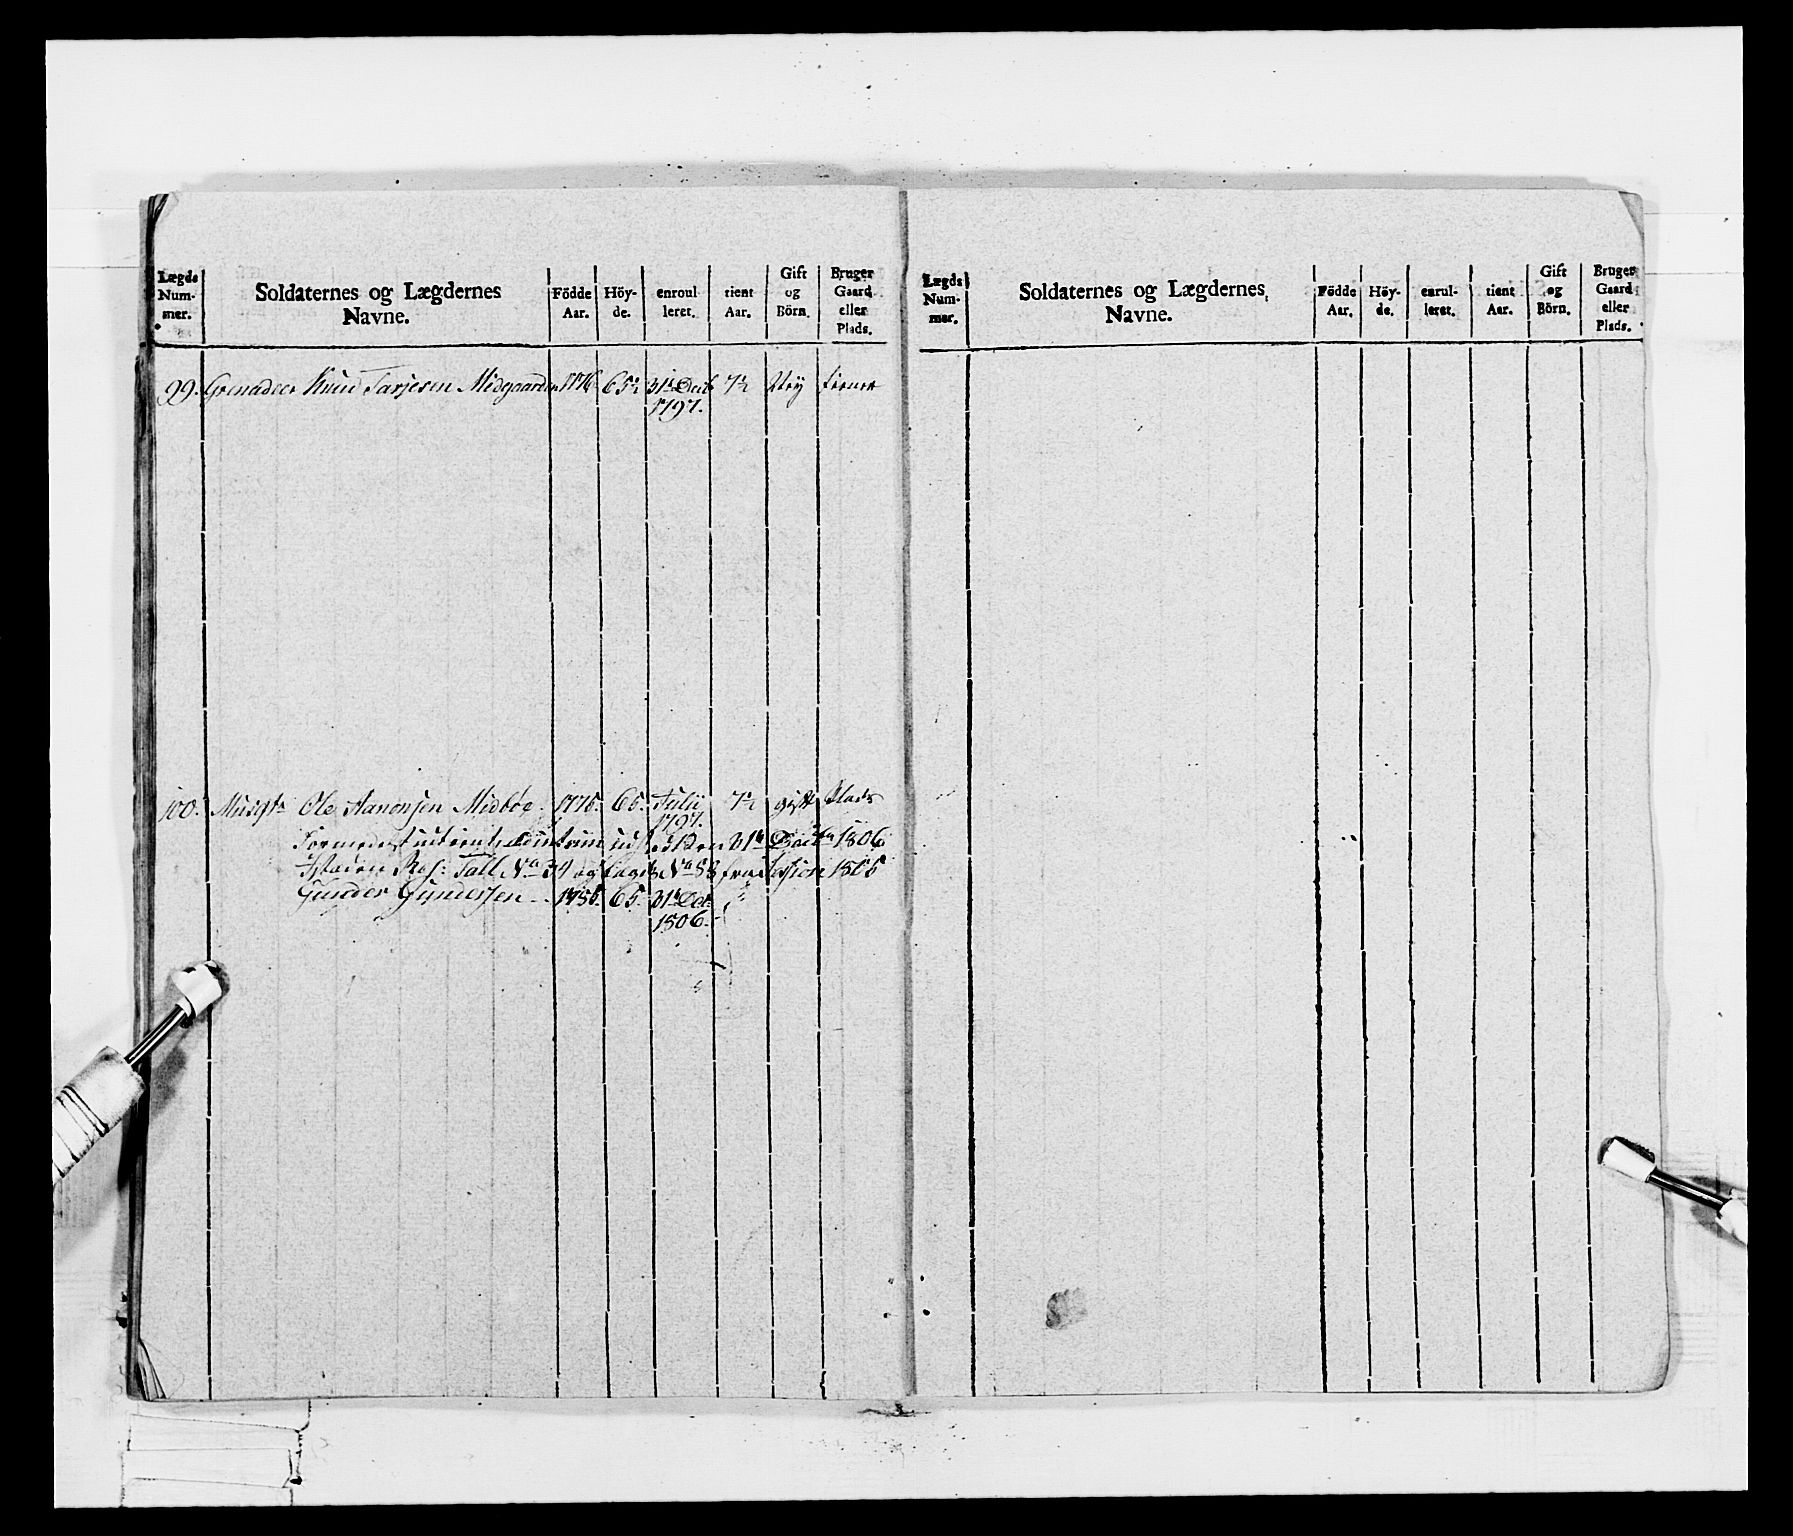 Lægds Num- mer.
Soldaternes og Lægdernes Navne.
Födde Aar.
Höy- de.
enroul- leret.
tient Aar.
Gift og Börn.
Bruger Gaard eller Plads.
99. Grenadeer Knud Tarjesen Midgaarden 1776 65½ 31te Decb 7½ Ury tiener
1797.
100. Musqtr Ole Aanonsen Midböe. 1775. 65. Julii 7½ gift Plads
1797.
31te Decbr 1806
Istæden Res: Tall No 34 og Lægds No 88 fra Session 1806
Gunder Gundersen 1786. 65. 31te Dec.
1806.
Lægds Num- mer.
Soldaternes og Lægdernes, Navne.
Födde Aar.
Höy- de.
enrul- leret.
tient Aar.
Gift og Börn.
Bruger Gaard eller Plads.